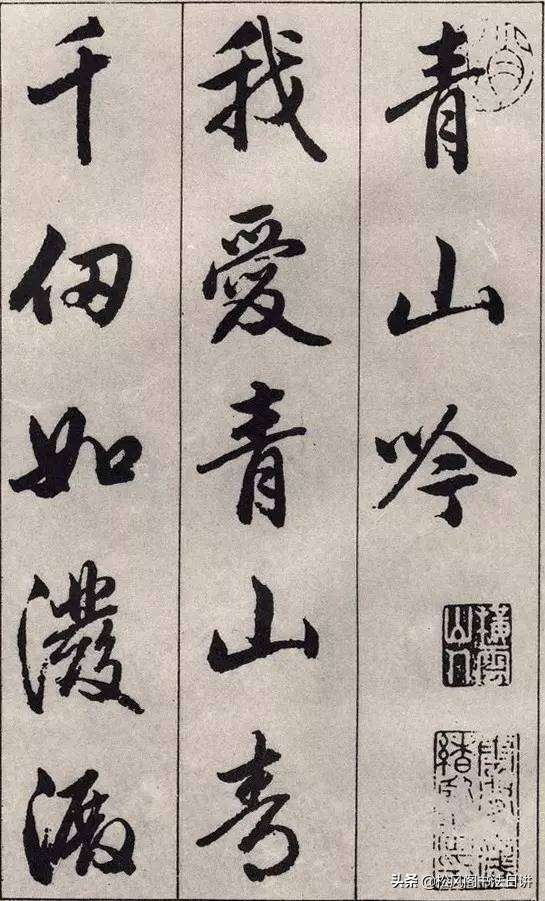 青山吟
橫雲山人
我愛青山青
千仞如潑
头条 @松风阁书法日讲